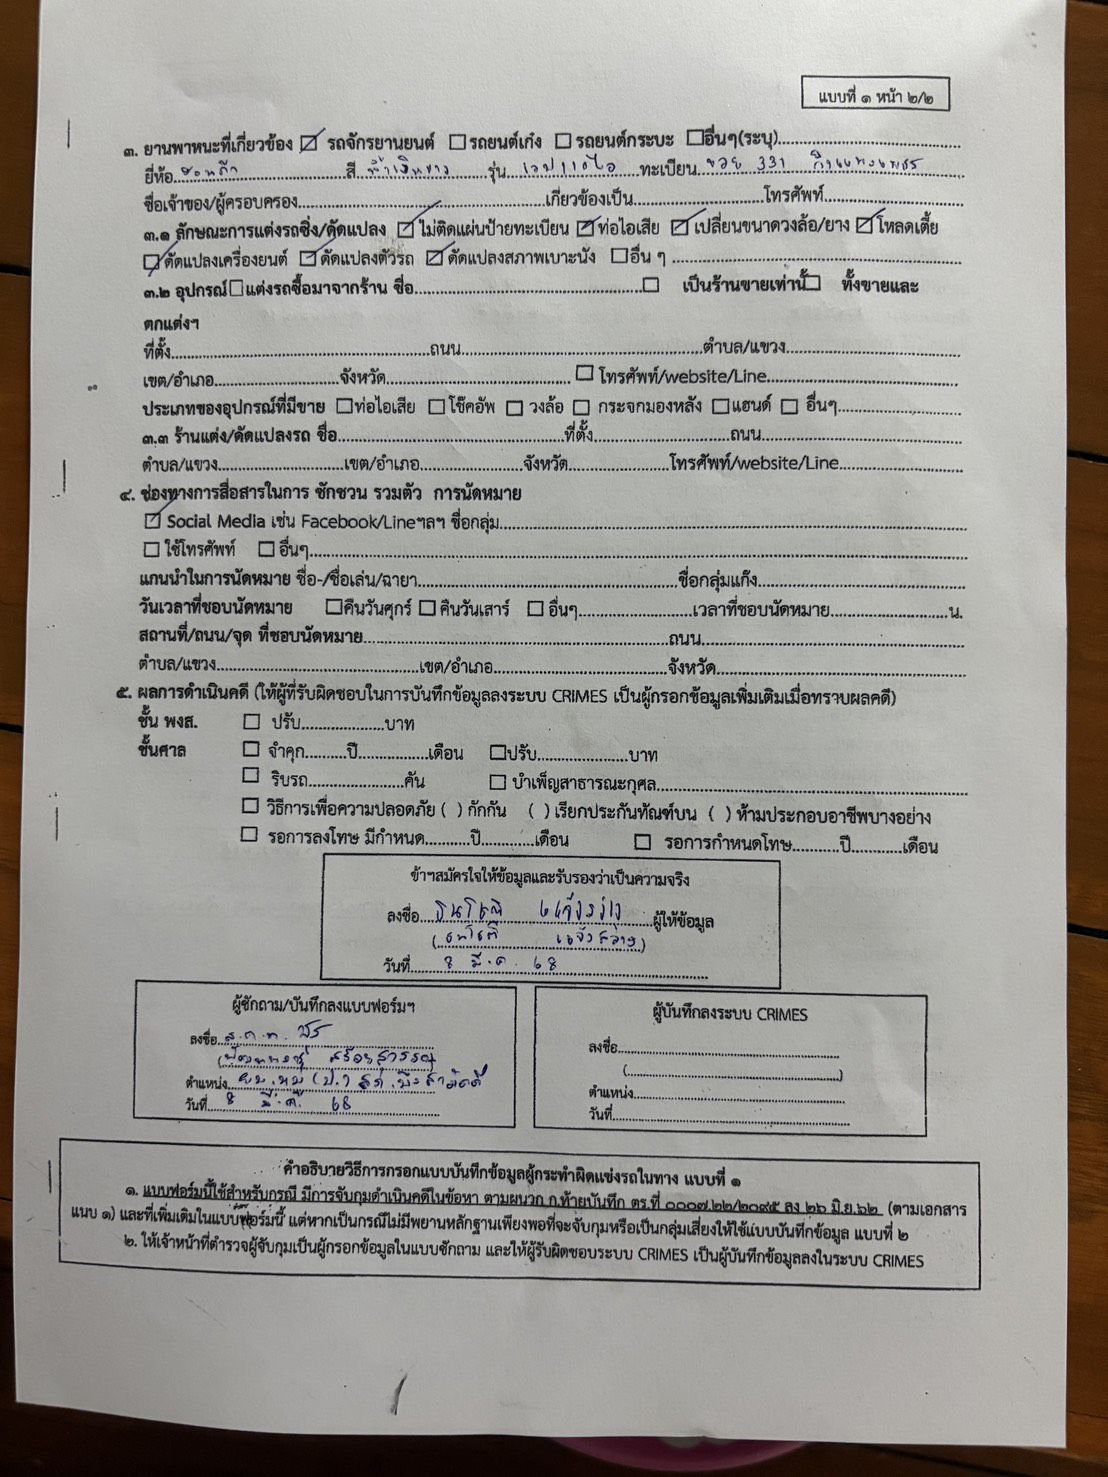 แบบที่ ๑ หน้า ๒/๒
๓. ยานพาหนะที่เกี่ยวข้อง ☑ รถจักรยานยนต์ ☐รถยนต์เก๋ง ☐ รถยนต์กระบะ ☐อื่นๆ(ระบุ)
ยี่ห้อ ฮอนด้า สี น้ำเงินขาว รุ่น เวฟ110ไอ ทะเบียน 331 กำแพงเพชร
ชื่อเจ้าของ/ผู้ครอบครอง เกี่ยวข้องเป็น โทรศัพท์
๓.๑ ลักษณะการแต่งรถซิ่ง/ดัดแปลง ☑ ไม่ติดแผ่นป้ายทะเบียน ☑ท่อไอเสีย ☑ เปลี่ยนขนาดวงล้อ/ยาง ☑ โหลดเตี้ย
☑ดัดแปลงเครื่องยนต์ ☑ ดัดแปลงตัวรถ ☑ ดัดแปลงสภาพเบาะนั่ง ☐อื่น ๆ
๓.๒ อุปกรณ์☐แต่งรถซื้อมาจากร้าน ชื่อ ☐ เป็นร้านขายเท่านั้น☐ ทั้งขายและ
ตกแต่งฯ
ที่ตั้ง ถนน ตำบล/แขวง
เขต/อำเภอ จังหวัด ☐ โทรศัพท์/website/Line
ประเภทของอุปกรณ์ที่มีขาย ☐ท่อไอเสีย ☐ โช๊คอัพ ☐ วงล้อ ☐ กระจกมองหลัง ☐แฮนด์ ☐ อื่นๆ
๓.๓ ร้านแต่ง/ดัดแปลงรถ ชื่อ ที่ตั้ง ถนน
ตำบล/แขวง เขต/อำเภอ จังหวัด โทรศัพท์/website/Line
๔. ช่องทางการสื่อสารในการ ชักชวน รวมตัว การนัดหมาย
☑ Social Media เช่น Facebook/Lineฯลฯ ชื่อกลุ่ม
☐ ใช้โทรศัพท์ ☐ อื่นๆ
แกนนำในการนัดหมาย ชื่อ-/ชื่อเล่น/ฉายา ชื่อกลุ่มแก๊ง
วันเวลาที่ชอบนัดหมาย ☐คืนวันศุกร์ ☐ คืนวันเสาร์ ☐ อื่นๆ เวลาที่ชอบนัดหมาย น.
สถานที่/ถนน/จุด ที่ชอบนัดหมาย ถนน
ตำบล/แขวง เขต/อำเภอ จังหวัด
๕. ผลการดำเนินคดี (ให้ผู้ที่รับผิดชอบในการบันทึกข้อมูลลงระบบ CRIMES เป็นผู้กรอกข้อมูลเพิ่มเติมเมื่อทราบผลคดี)
ชั้น พงส. ☐ ปรับ บาท
ชั้นศาล ☐ จำคุก ปี เดือน ☐ปรับ บาท
☐ ริบรถ คัน ☐ บำเพ็ญสาธารณะกุศล
☐ วิธีการเพื่อความปลอดภัย ( ) กักกัน ( ) เรียกประกันทัณฑ์บน ( ) ห้ามประกอบอาชีพบางอย่าง
☐ รอการลงโทษ มีกำหนด ปี เดือน ☐ รอการกำหนดโทษ ปี เดือน
ข้าฯสมัครใจให้ข้อมูลและรับรองว่าเป็นความจริง
ลงชื่อ ธนโชติ แจ้งสว่าง ผู้ให้ข้อมูล
(ธนโชติ แจ้งสว่าง)
วันที่ 8 มี.ค. 68
ผู้ซักถาม/บันทึกลงแบบฟอร์มฯ
ลงชื่อ ส.ต.ท.
ตำแหน่ง ผบ.หมู่ (ป.) สภ.บึงสามัคคี
วันที่ 8 มี.ค. 68
ผู้บันทึกลงระบบ CRIMES
ลงชื่อ
( )
ตำแหน่ง
วันที่
คำอธิบายวิธีการกรอกแบบบันทึกข้อมูลผู้กระทำผิดแข่งรถในทาง แบบที่ ๑
๑. แบบฟอร์มนี้ใช้สำหรับกรณี มีการจับกุมดำเนินคดีในข้อหา ตามผนวก ก.ท้ายบันทึก ตร.ที่ ๐๐๐๗.๒๒/๒๐๙๕ ลง ๒๖ มิ.ย.๖๒ (ตามเอกสาร
แนบ ๑) และที่เพิ่มเติมในแบบฟอร์มนี้ แต่หากเป็นกรณีไม่มีพยานหลักฐานเพียงพอที่จะจับกุมหรือเป็นกลุ่มเสี่ยงให้ใช้แบบบันทึกข้อมูล แบบที่ ๒
๒. ให้เจ้าหน้าที่ตำรวจผู้จับกุมเป็นผู้กรอกข้อมูลในแบบซักถาม และให้ผู้รับผิดชอบระบบ CRIMES เป็นผู้บันทึกข้อมูลลงในระบบ CRIMES